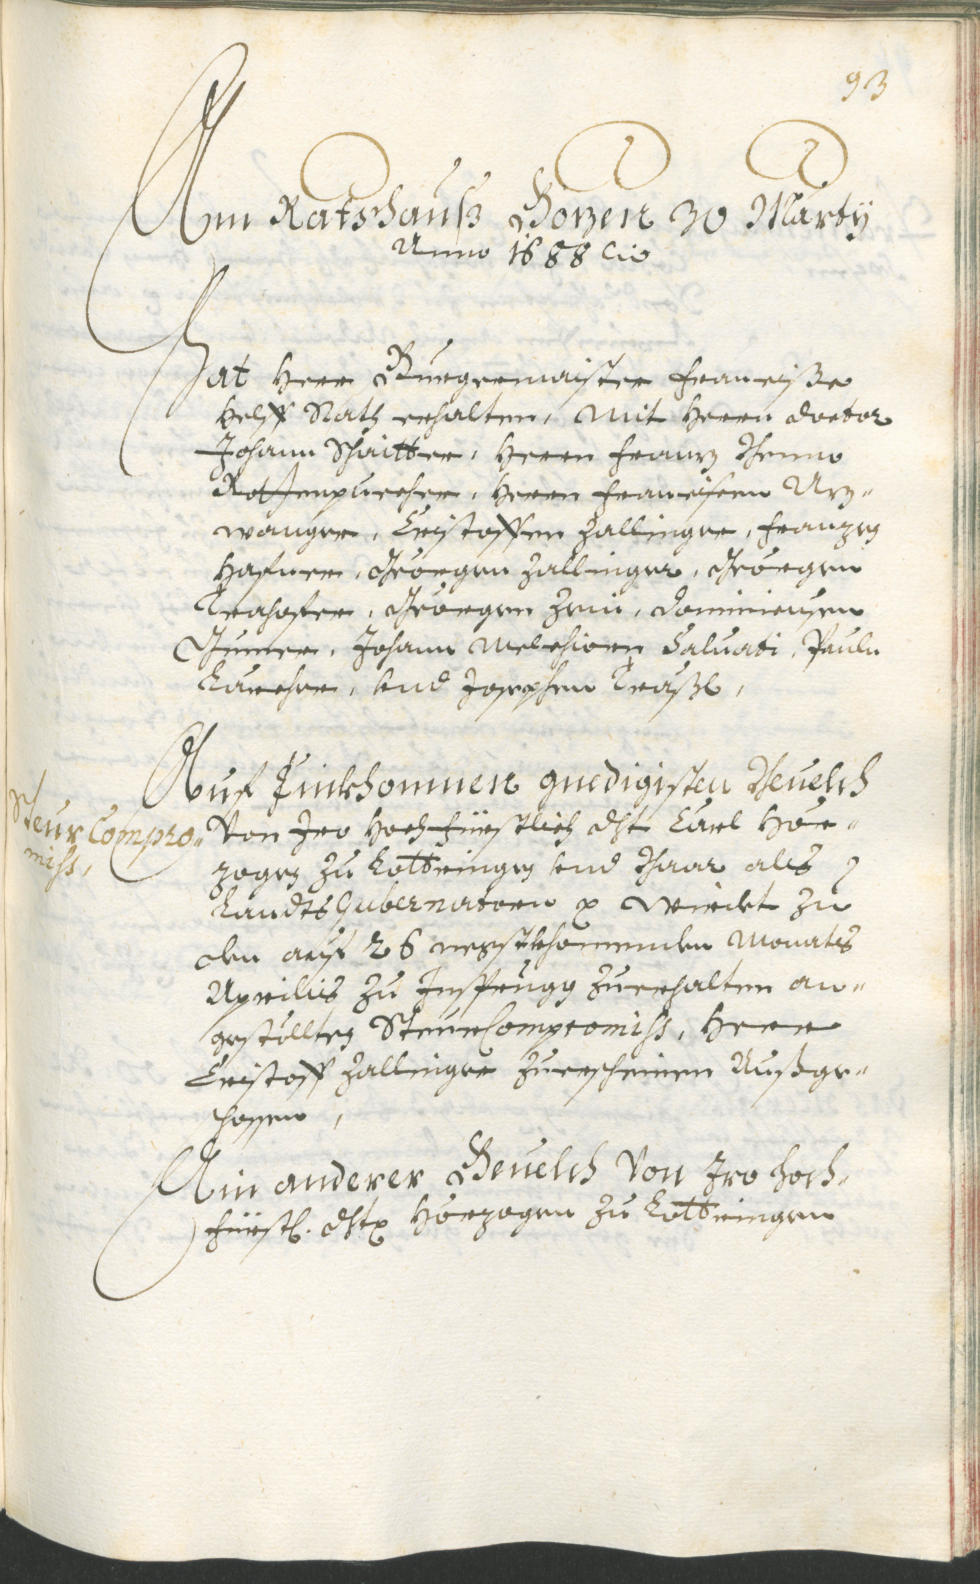 93
Am Ratshauß Bozen 30 Marty
Anno 1688 &c
Hat Herr Burgermaister Franciße
Helff Rath gehalten, mit Herrn Doctor
Johann Schaitter, Herrn Franz Thenno
Rottenpucher, Herrn Francisen Arz-
wanger, Cristoffen Zallinger, Franzen
Hafner, Geörgen Zallinger, Geörgen
Trahofer, Geörgen Zeni, Dominicusen
Gumer, Johann Melchiorn Saluati, Pauln
Larcher, und Josephen Traißl,
Auf Einkhomnen gnedigisten Beuelch
Steur Compro-
miss,
von Iro Hochfürstlich Dht Carl Hör-
zogen zu Lottringen und Baar als
Landts Gubernatorn &c wirdet zu
den auf 26 negstkhomenden Monats
Aprilis zu Insprugg zuerhalten an-
gestöllten Steur Compromiss, Herr
Cristoff Zallinger zuerscheinen Außge-
schossen,
Ain anderer Beuelch von Iro hoch-
fürstl. Dht Hörzogen zu Lottringen